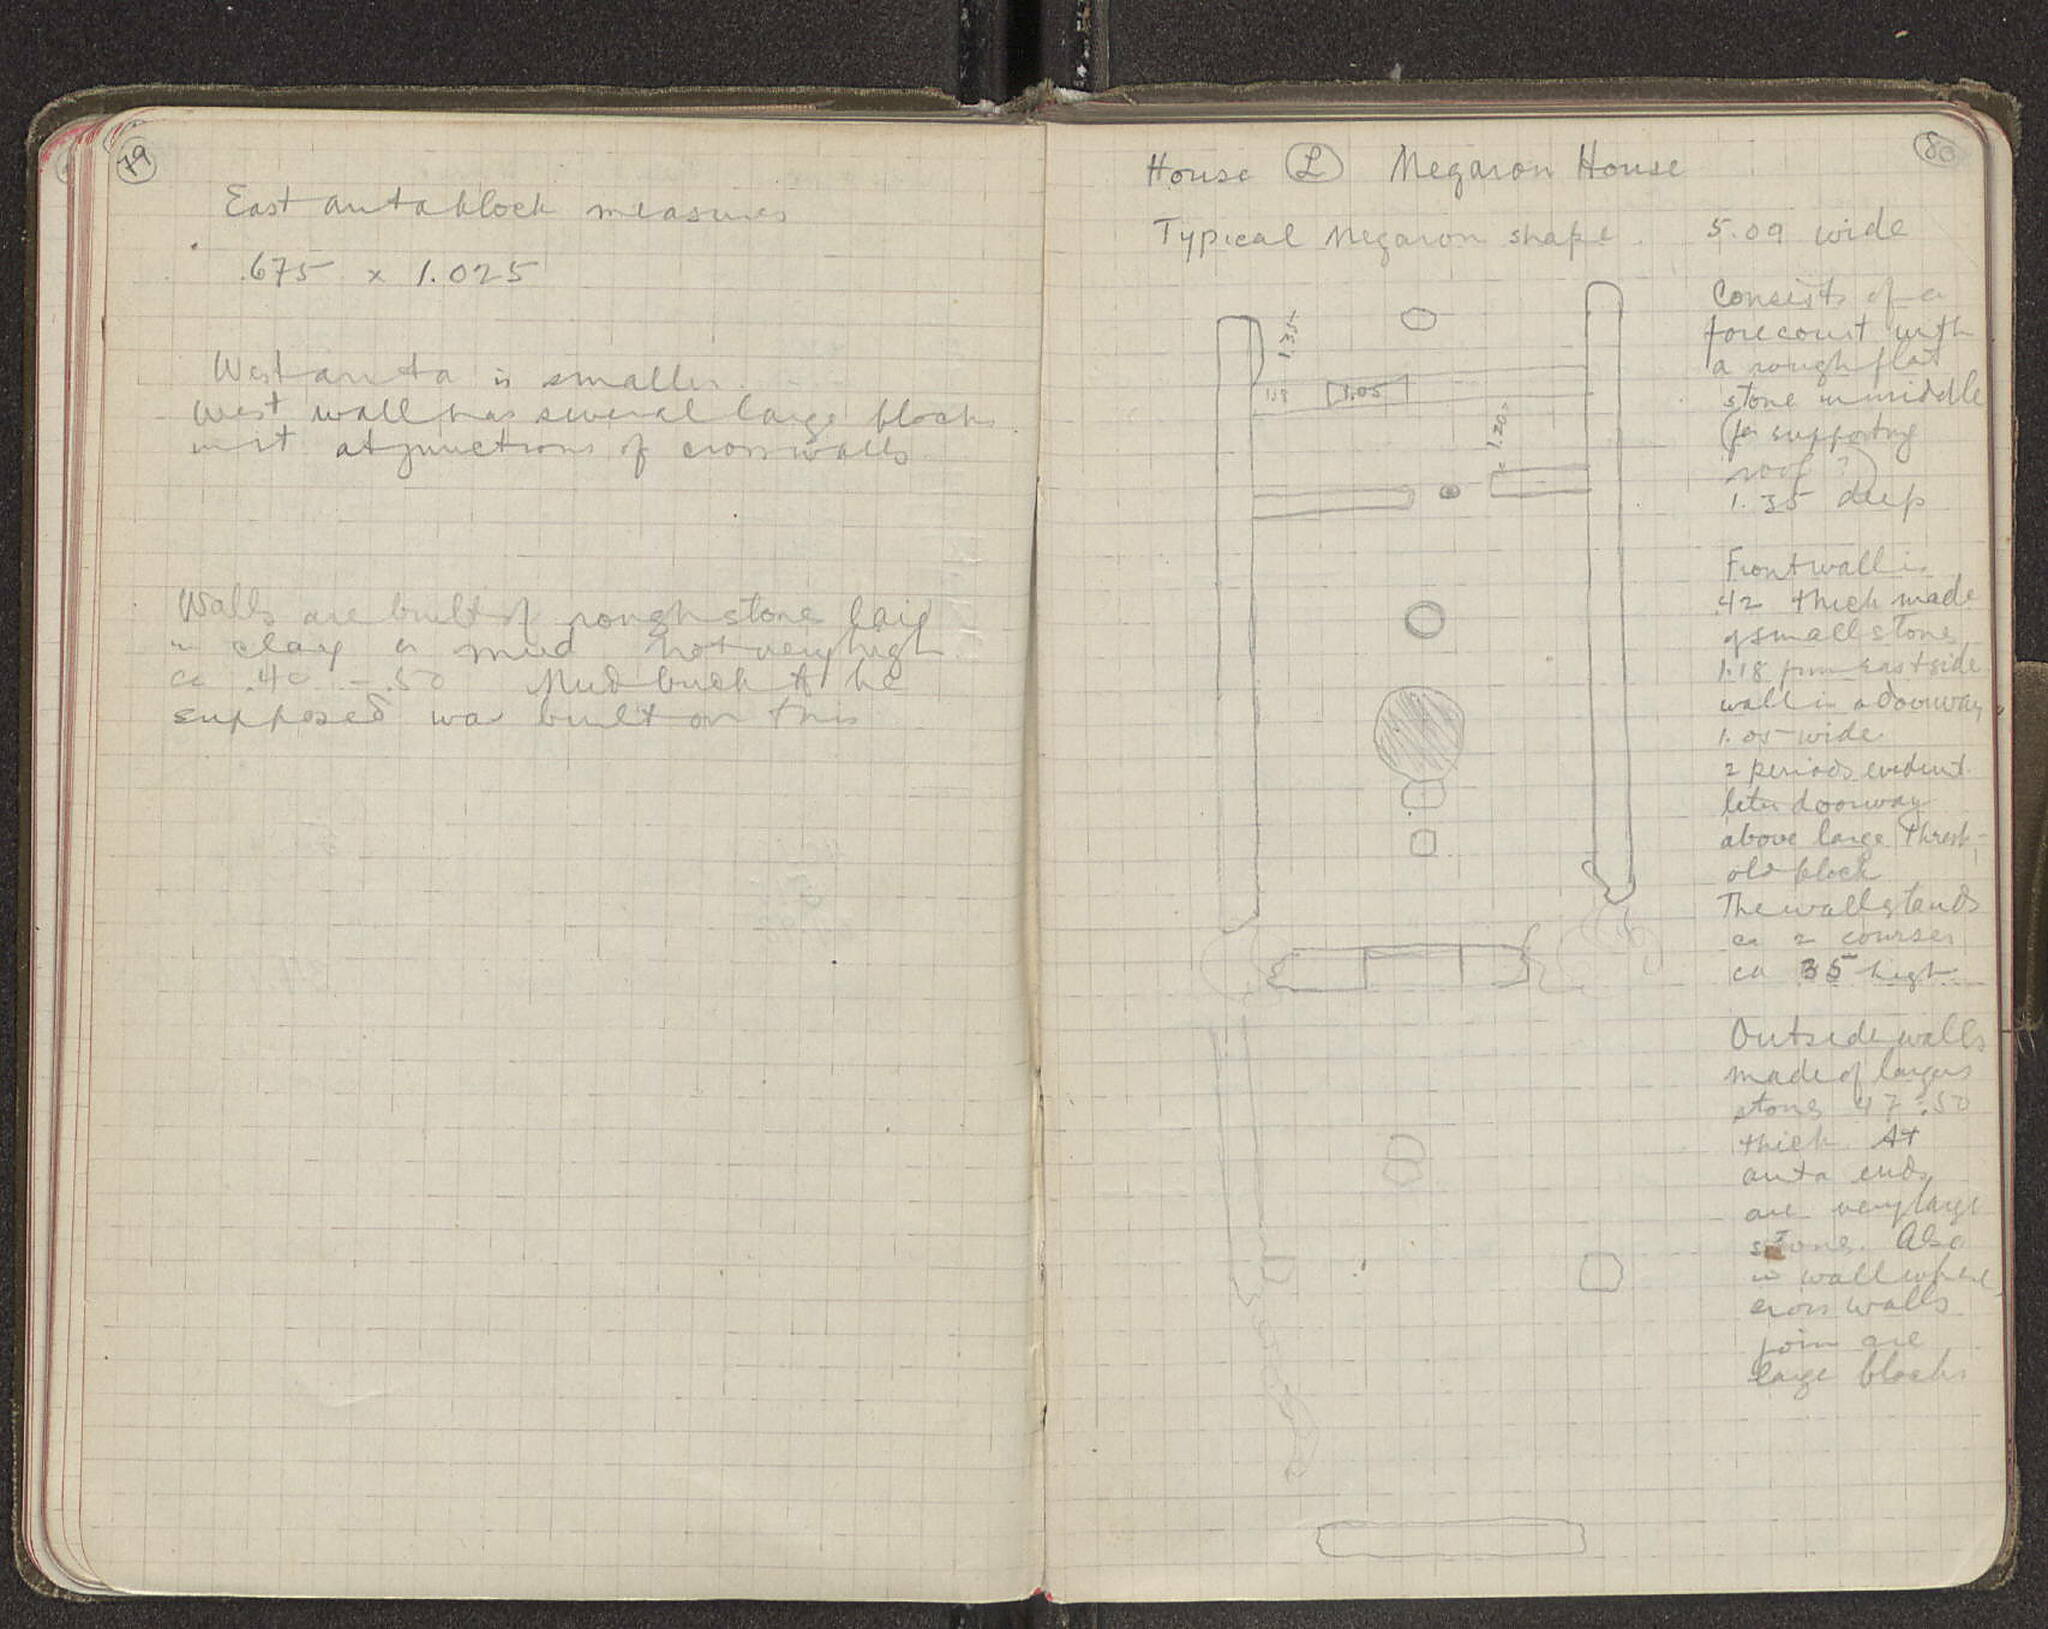 79
East anta block measures
.675 x 1.025
West anta is smaller.
West wall has several large blocks
in it at junctions of cross walls
Walls are built of rough stone laid
in clay or mud not very high
ca .40 - .50 Mud brick
supposed was built on this
80
House L Megaron House
Typical Megaron shape. 5.09 wide
Consists of a
forecourt with
a rough flat
stone in middle
(for supporting
roof?)
1.35 deep
1.35
1.18
1.05
1.20
Front wall is
.42 thick made
of small stones
1.18 from east side
wall is a doorway
1.05 wide.
2 periods evident
later doorway
above large thresh-
old block
The wall stands
ca 2 courses
ca 35 high
Outside walls
made of larger
stones 47-.50
thick. At
anta ends
are very large
stones. Also
in wall where
cross walls
join are
large blocks